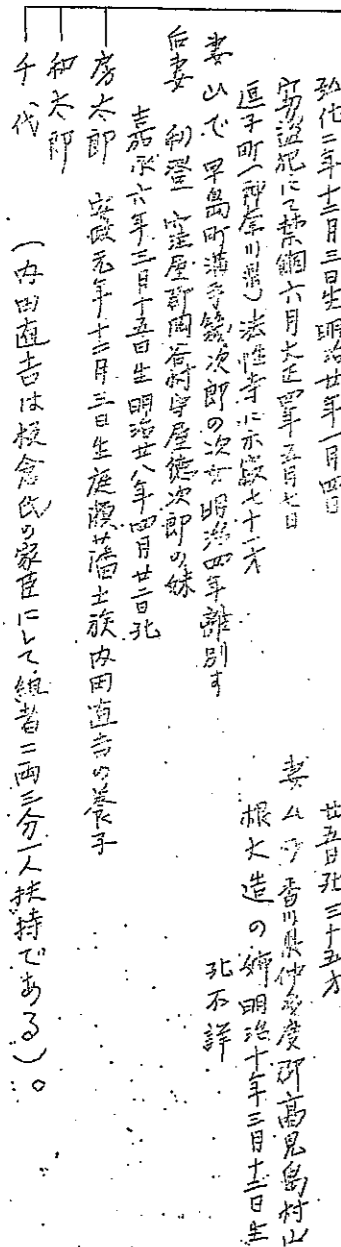 弘化二年十二月三日生明治廿年一月四日
窃盗犯にて禁錮六月大正四年五月七日
逗子町(神奈川県)法性寺に永眠七十一才
妻 山で 早島町溝手鶴次郎の次女明治四年離別す
后妻 利登 窪屋郡岡谷村守屋徳次郎の妹
嘉永六年三月十五日生明治廿八年四月廿二日死
房太郎 安政元年十二月三日生庭瀬藩士族内田直吉の養子
和太郎
千代 (内田直吉は板倉氏の家臣にして組者二両三分一人扶持である)。
廿五日死 三十五才
妻 ムメ 香川県仲多度郡高見島村山
根大造の姉明治十年三月十二日生
死不詳